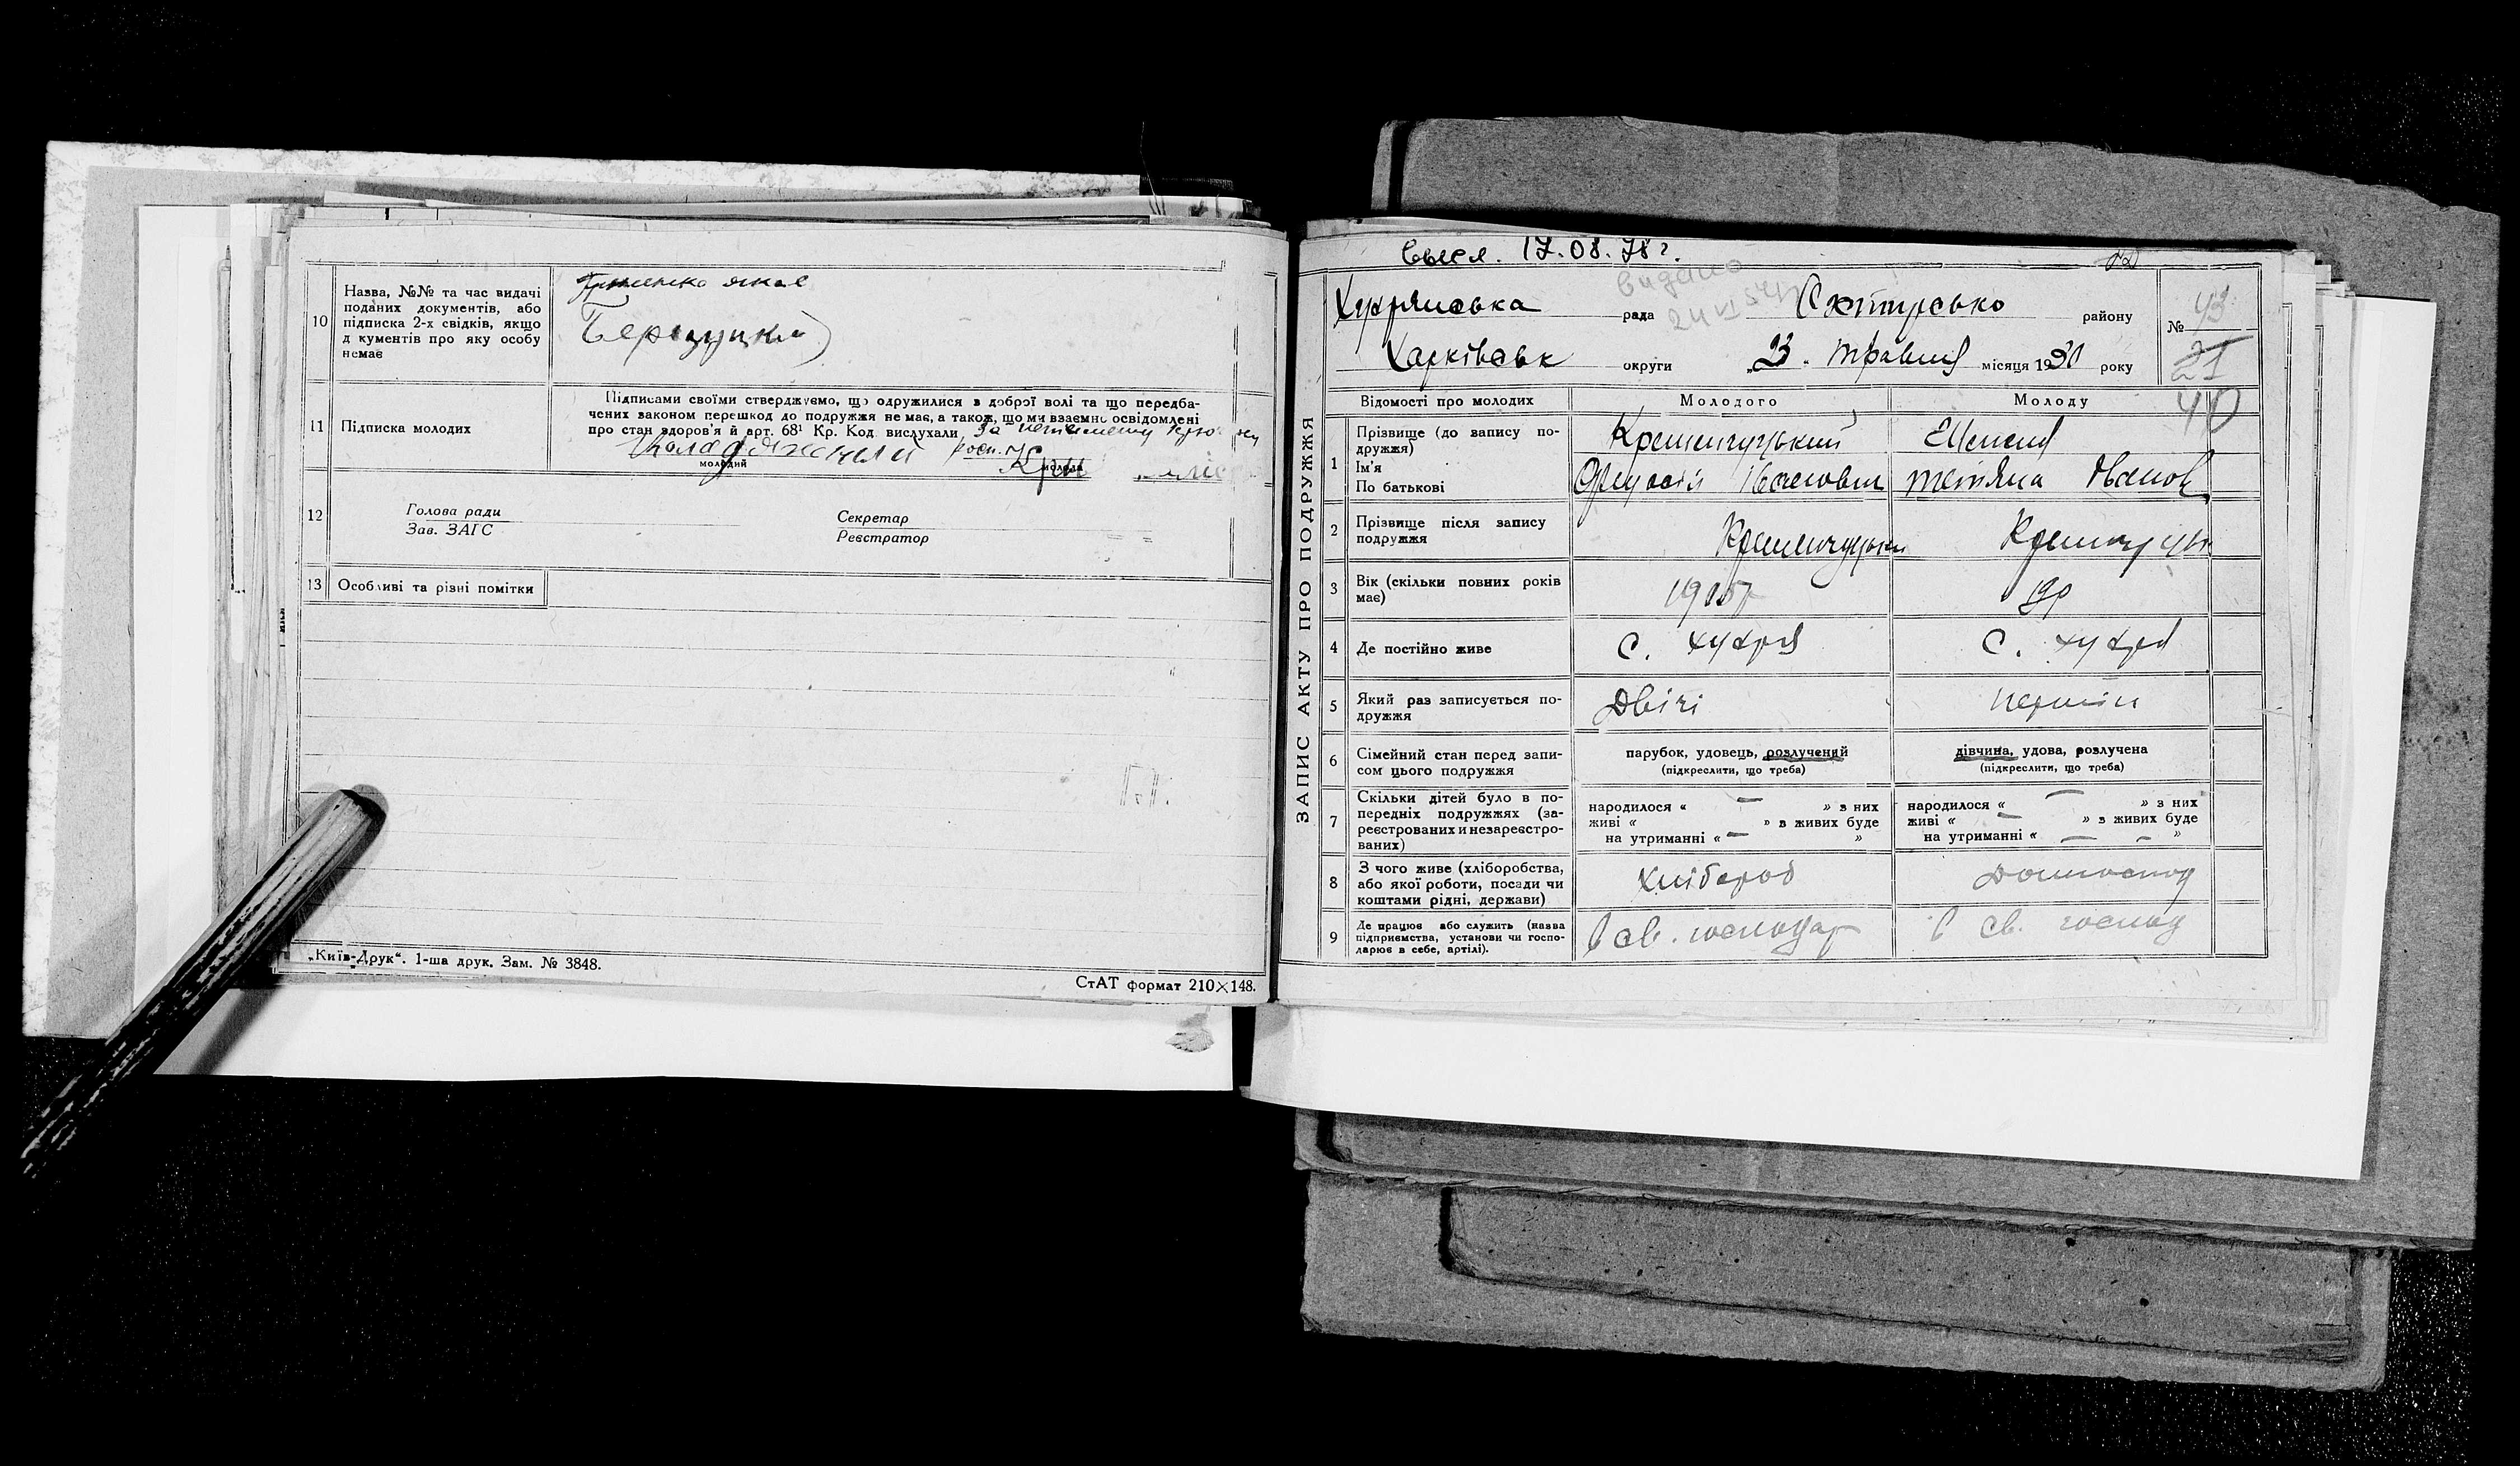 10
Назва, №№ та час видачі
поданих документів, або
підписка 2-х свідків, якщо
д кументів про яку особу
немає
11
Підписка молодих
Підписами своїми стверджуємо, що одружилися з доброї волі та що передба-
чених законом перешкод до подружжя немає, а також, що ми взаємно освідомлені
про стан здоров'я й арт. 68¹ Кр. Код вислухали
молодий
молода
12
Голова ради
Зав. ЗАГС
Секретар
Реєстратор
13 Особливі та різні помітки
„Київ-Друк“. 1-ша друк. Зам. № 3848.
СтАТ формат 210×148.
ЗАПИС АКТУ ПРО ПОДРУЖЖЯ
Высл. 17.08.78 г.
Видано
24 VI 54 р
Хухрянська рада Охтирсько району
№ 43
21
40
Харківськ округи „23. травня місяця 1930 року
Відомості про молодих Молодого Молоду
1
Прізвище (до запису по-
дружжя)
Ім'я
По батькові
Кременчуцький
Іванович
Тетяна Іванов
2
Прізвище після запису
подружжя
Кременчуцьки
3
Вік (скільки повних років
має)
1905р
19р
4 Де постійно живе с. Хухря с. Хухря
5
Який раз записується по-
дружжя
Двічі
перший
6
Сімейний стан перед запи-
сом цього подружжя
парубок, удовець, розлучений
(підкреслити, що треба)
дівчина, удова, розлучена
(підкреслити, що треба)
7
Скільки дітей було в по-
передніх подружжях (за-
реєстрованих и незареєстро-
ваних)
народилося « — » з них
живі « » в живих буде
на утриманні « — »
народилося « — » з них
живі « — » з живих буде
на утриманні « — — »
8
З чого живе (хліборобства,
або якої роботи, посади чи
коштами рідні, держави)
Хлібороб
Домогоспод
9
Де працює або служить (назва
підприємства, установи чи госпо-
дарює в себе, артілі).
В св. господар
В св. господ